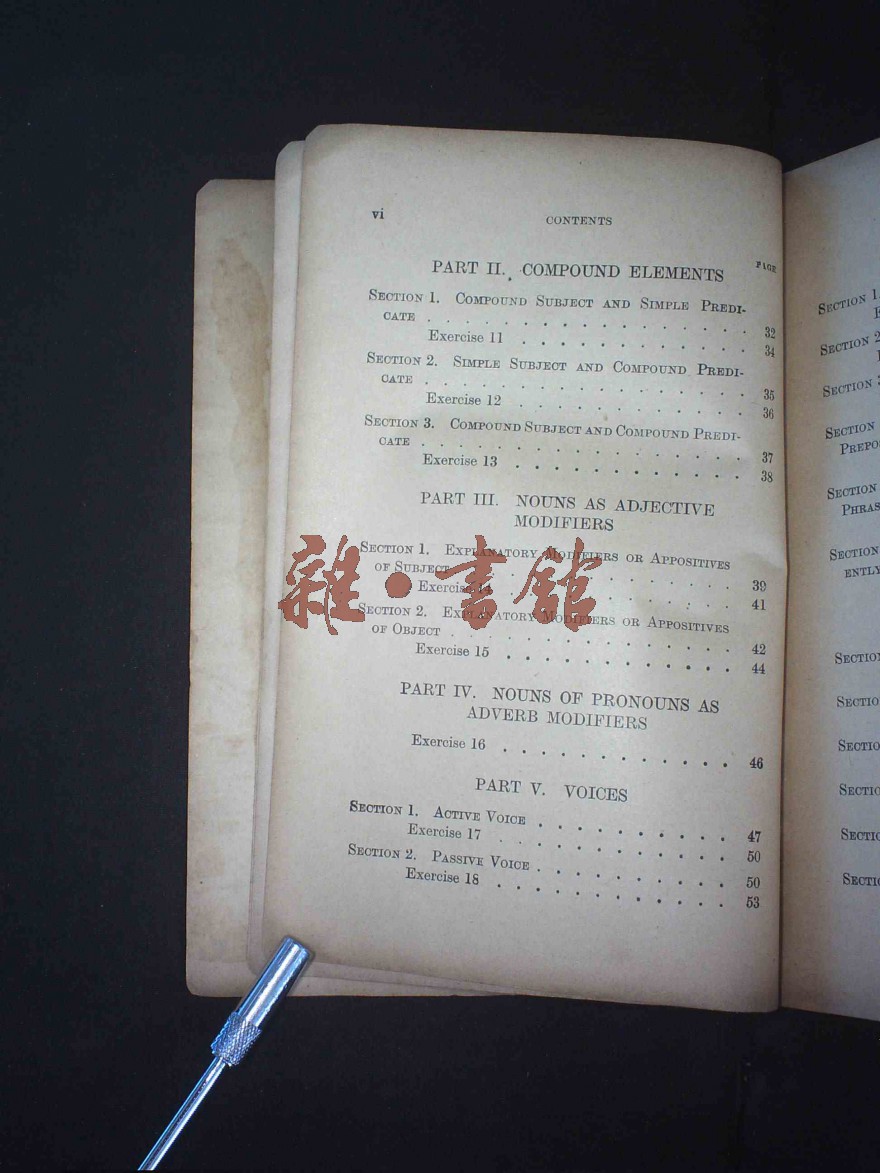 vi
CONTENTS
PAGE
PART II. COMPOUND ELEMENTS
SECTION 1. COMPOUND SUBJECT AND SIMPLE PREDI-
CATE . . . . . . . . . . . . . . . . 32
Exercise 11 . . . . . . . . . . . . 34
SECTION 2. SIMPLE SUBJECT AND COMPOUND PREDI-
CATE . . . . . . . . . . . . . . . . 35
Exercise 12 . . . . . . . . . . . . 36
SECTION 3. COMPOUND SUBJECT AND COMPOUND PREDI-
CATE . . . . . . . . . . . . . . . . 37
Exercise 13 . . . . . . . . . . . . 38
PART III. NOUNS AS ADJECTIVE
MODIFIERS
SECTION 1. EXPLANATORY MODIFIERS OR APPOSITIVES
OF SUBJECT . . . . . . . . . . . . 39
Exercise 14 . . . . . . . . . . . . 41
SECTION 2. EXPLANATORY MODIFIERS OR APPOSITIVES
OF OBJECT . . . . . . . . . . . . 42
Exercise 15 . . . . . . . . . . . . 44
PART IV. NOUNS OF PRONOUNS AS
ADVERB MODIFIERS
Exercise 16 . . . . . . . . . . . . 46
PART V. VOICES
SECTION 1. ACTIVE VOICE . . . . . . . . . . 47
Exercise 17 . . . . . . . . . . . . 50
SECTION 2. PASSIVE VOICE . . . . . . . . . . 50
Exercise 18 . . . . . . . . . . . . 53
雜·書館
SECTION 1.
SECTION 2
SECTION 3
SECTION
PREPO
SECTION
PHRAS
SECTION
ENTLY
SECTION
SECTIO
SECTIO
SECTIO
SECTIO
SECTI